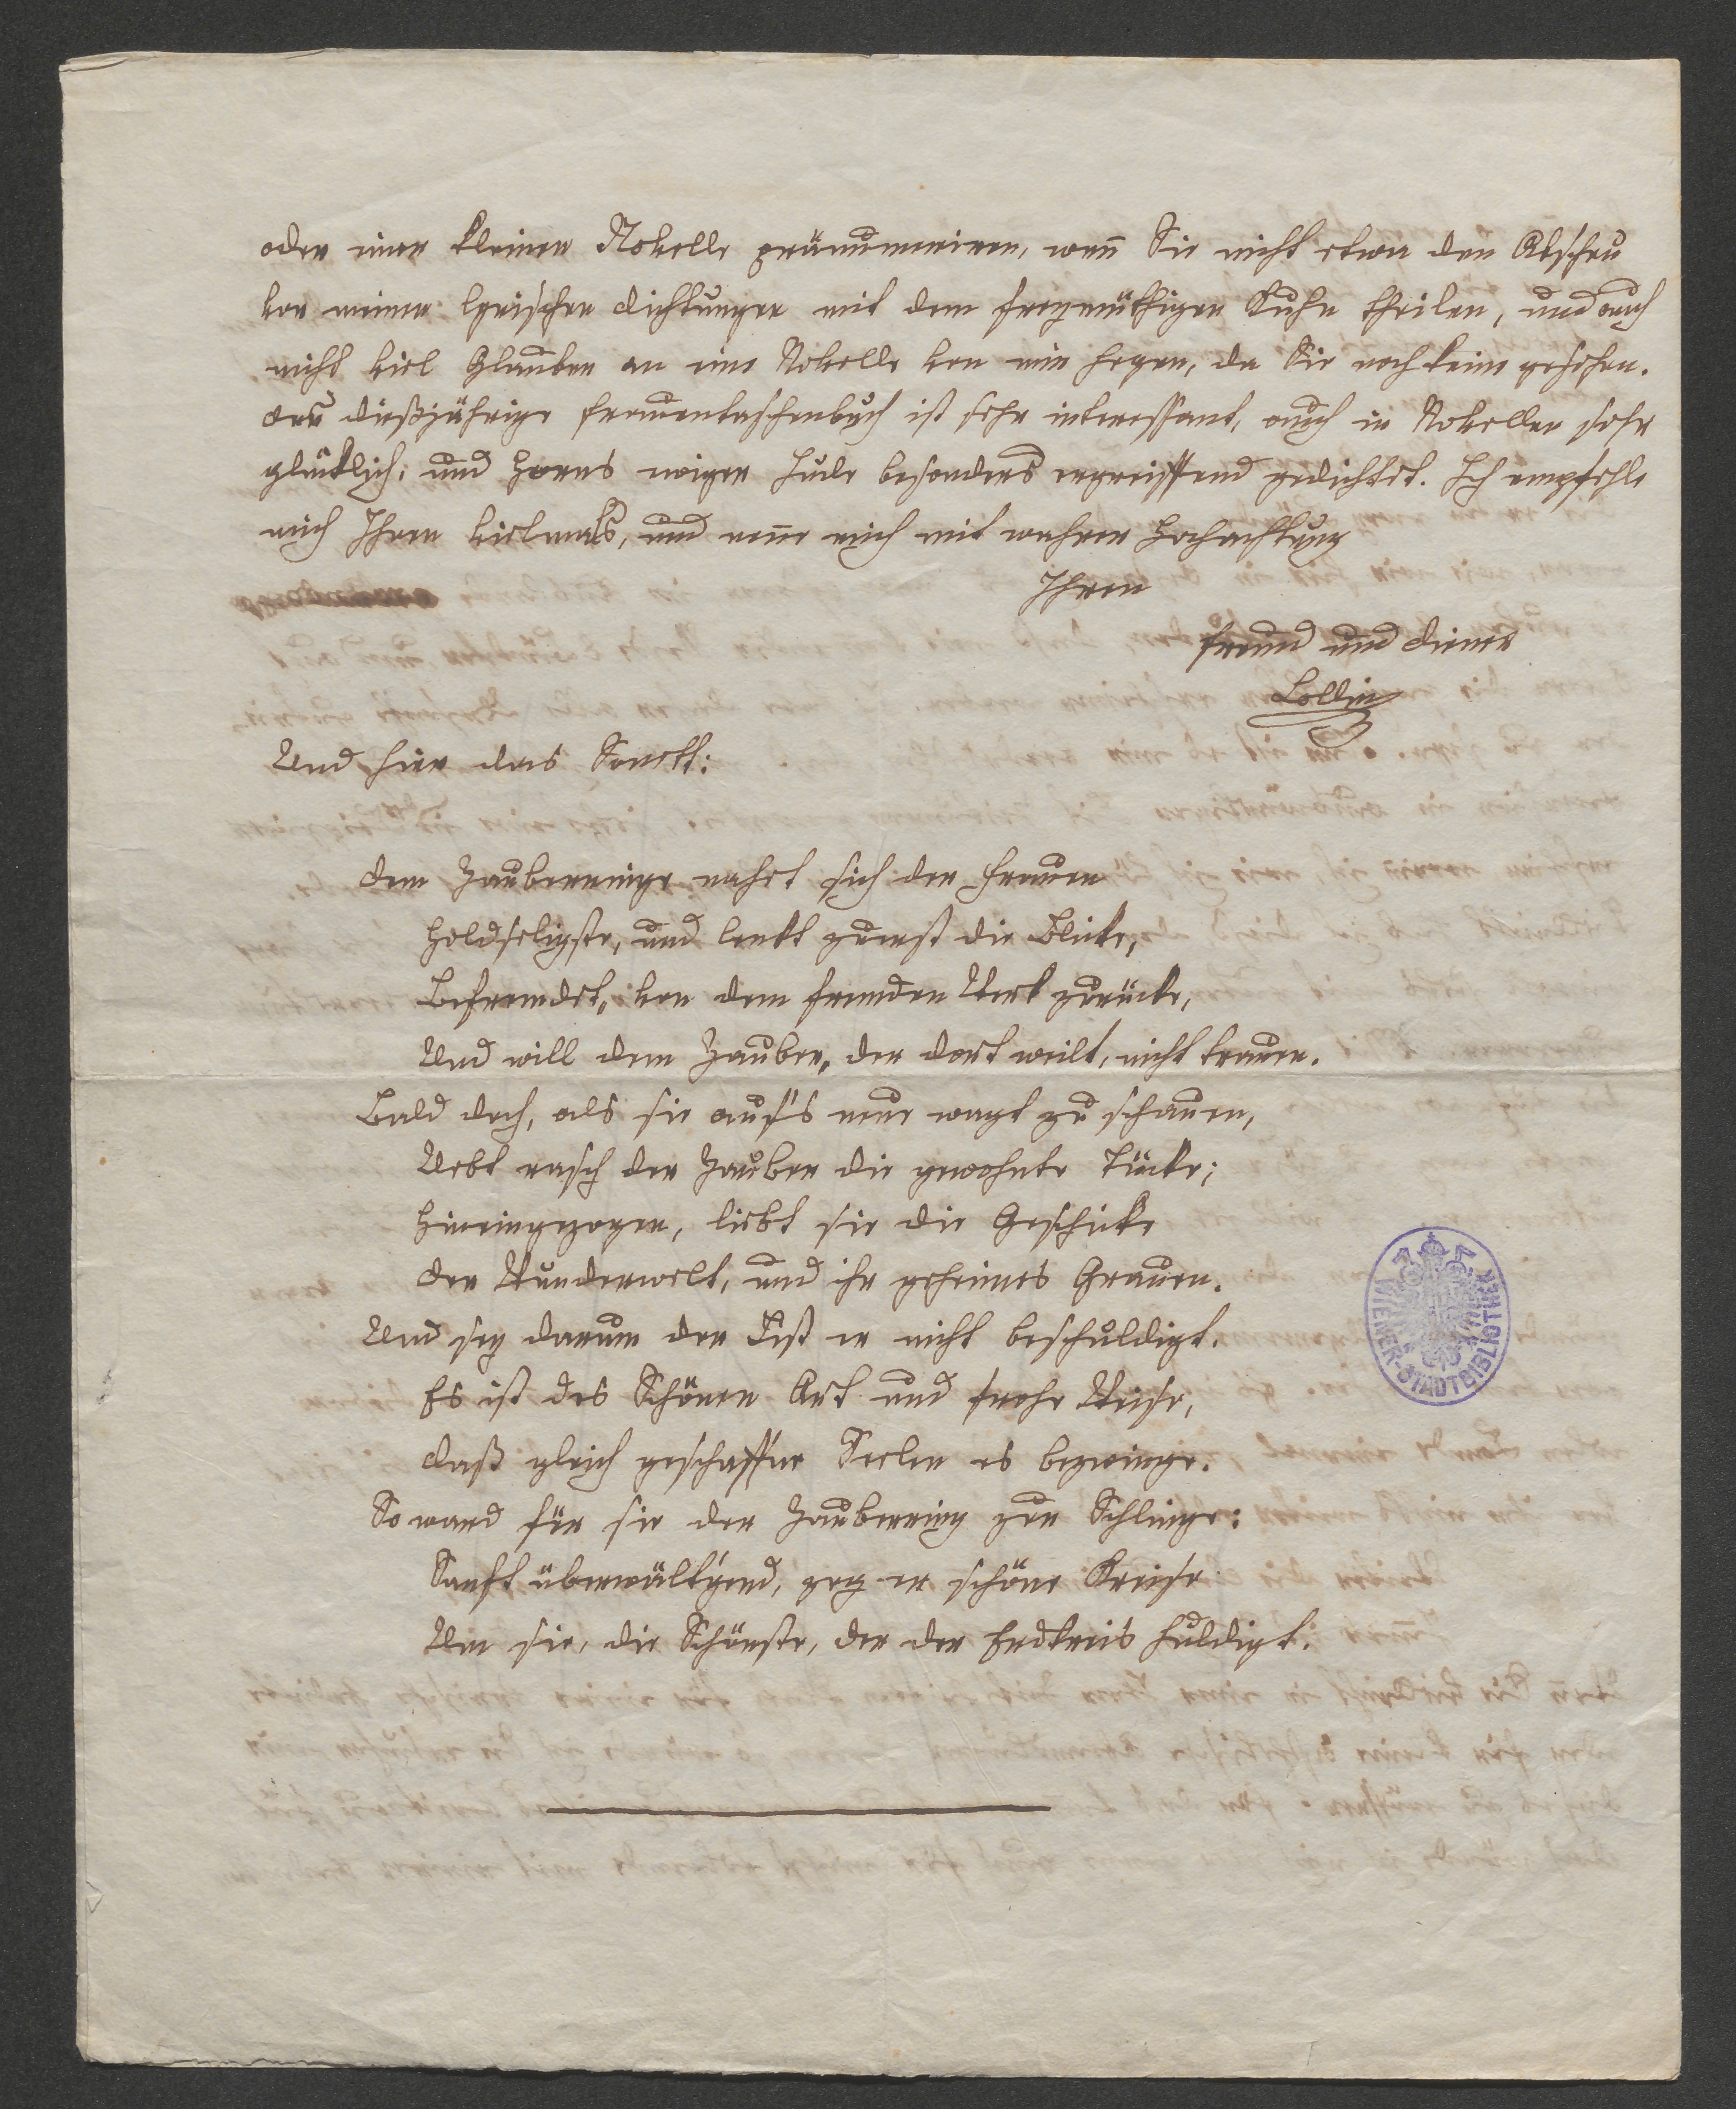 oder einer kleinen Novelle pränumeriren, wen̄ Sie nicht etwa den Abscheu
vor meinen lyrischen Dichtungen mit dem freymüthigen Kuhn theilen, und auch
nicht viel Glauben an eine Novelle von mir hegen, da Sie noch keine gesehen.
Das dießjährige Frauentaschenbuch ist sehr interessant, auch in Novellen sehr
glücklich, und Horns ewiger Jude besonders ergreiffend gedichtet. Ich empfehle
mich Ihnen vielmals, und nen̄e mich mit wahrer Hochachtung
Ihren
Freund und Diener
Collin
Und hier das Sonett:
Dem Zauberringe nahet sich der Frauen
Holdseligste, und lenkt zuerst die Blicke,
Befremdet, von dem fremden Werk zurücke,
Und will dem Zauber, der dort weilt, nicht trauen.
Bald doch, als sie auf's neue wagt zu schauen,
Uebt rasch der Zauber die gewohnte Tücke;
Hineingezogen, liebt sie die Geschicke
Der Wunderwelt, und ihr geheimes Grauen.
Und sey darum der List er nicht beschuldigt.
Es ist des Schönen Art und frohe Weise,
Daß gleich geschaff'ne Seelen es bezwinge.
So ward für sie der Zauberring zur Schlinge:
Sanft überwält'gend, zog er schöne Kreise
Um sie, die Schönste, der der Erdkreis huldigt.
WIENER-STADTBIBLIOTHEK